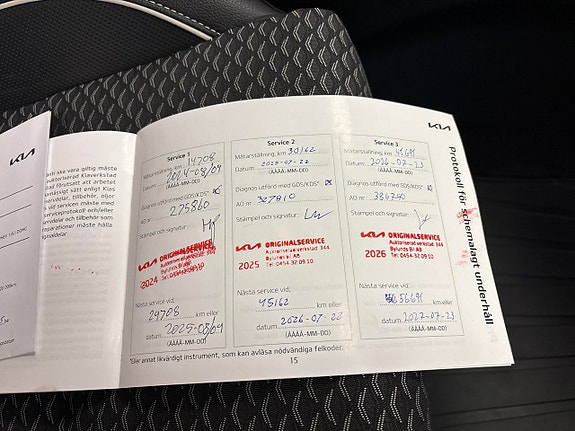 KIA
KIA
Protokoll för schemalagt underhåll
Service 1
Mätarställning, km 14708
Datum 2024-08/09
(ÅÅÅÅ-MM-DD)
Diagnos utförd med GDS/KDS*
AO nr 275860
Stämpel och signatur
KIA ORIGINALSERVICE
Auktoriserad verkstad 344
Bylunds Bil AB
2024 Tel. 0454-32 09 10
Nästa service vid;
29708 km eller
datum 2025-08/09
(ÅÅÅÅ-MM-DD)
Service 2
Mätarställning, km 30162
Datum 2025-07-22
(ÅÅÅÅ-MM-DD)
Diagnos utförd med GDS/KDS*
AO nr
Stämpel och signatur
KIA ORIGINALSERVICE
Auktoriserad verkstad 344
Bylunds Bil AB
2025 Tel. 0454-32 09 10
Nästa service vid;
45162 km eller
datum 2026-07-22
(ÅÅÅÅ-MM-DD)
Service 3
Mätarställning, km 41691
Datum 2026-07-23
(ÅÅÅÅ-MM-DD)
Diagnos utförd med GDS/KDS*
AO nr 386740
Stämpel och signatur
KIA ORIGINALSERVICE
Auktoriserad verkstad 344
Bylunds Bil AB
2026 Tel. 0454-32 09 10
Nästa service vid;
56691 km eller
datum 2027-07-23
(ÅÅÅÅ-MM-DD)
*Eller annat likvärdigt instrument, som kan avläsa nödvändiga felkoder.
15